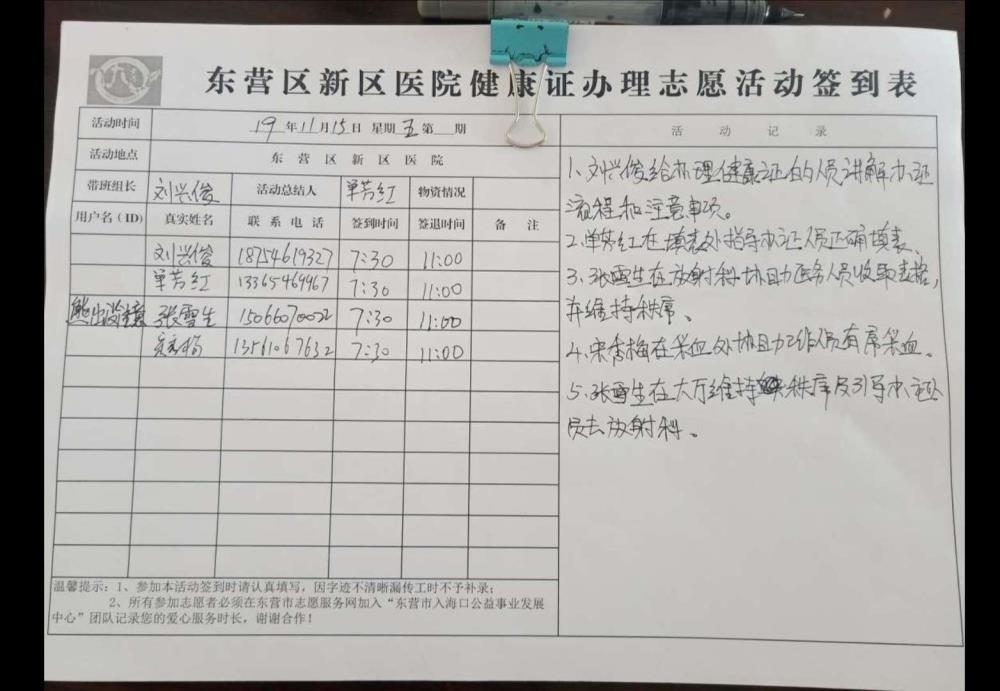 东营区新区医院健康证办理志愿活动签到表
活动时间 19年11月15日 星期五第 期
活动地点 东营区新区医院
带班组长 刘兴俊 活动总结人 单芳红 物资情况
用户名(ID) 真实姓名 联系电话 签到时间 签退时间 备注
刘兴俊 18754619327 7:30 11:00
单芳红 13365469967 7:30 11:00
熊出没注意 张雪生 15066070022 7:30 11:00
13561067632 7:30 11:00
温馨提示：1、参加本活动签到时请认真填写，因字迹不清晰漏传工时不予补录；
2、所有参加志愿者必须在东营市志愿服务网加入“东营市入海口公益事业发展
中心”团队记录您的爱心服务时长，谢谢合作！
活动记录
1、刘兴俊给办理健康证的人员讲解办证
流程和注意事项。
2、单芳红在填表处指导办证人员正确填表。
3、张雪生在放射科协助医务人员收取表格，
并维持秩序。
4、宋香梅在采血处协助工作人员有序采血。
5、张雪生在大厅维持秩序及引导办证人
员去放射科。